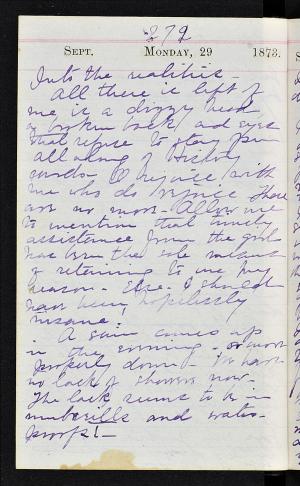 272
SEPT. MONDAY, 29 1873.
Into the realities -
All there is left of
me is a dizzy head
a broken back and eyes
that refuse to stay open
all along of History
exods - O rejoice with
me who do rejoice there
are no more - Allow me
to mention that timely
assistance from the girls
has been the sole means
of retaining to me my
reason - else I should
have been hopelessly
insane -
A rain comes up
in the evening - or more
properly down - We have
no lack of showers now.
The lack seems to be in
umberills and water-
proofs! -